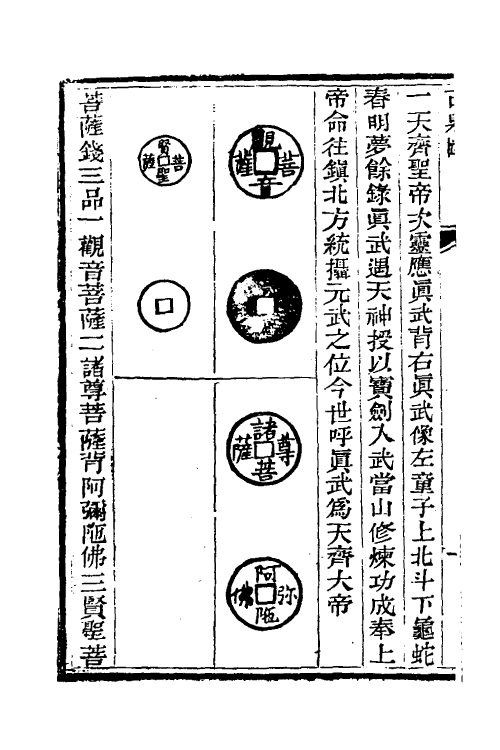 一天齊聖帝次靈應眞武背右眞武像左童子上北斗下龜蛇
春明夢餘錄眞武遇天神授以寶劍入武當山修煉功成奉上
帝命往鎭北方統攝元武之位今世呼眞武爲天齊大帝
觀音菩薩
諸尊菩薩
阿弥陁佛
賢聖菩薩
菩薩錢三品一觀音菩薩二諸尊菩薩背阿彌陁佛三賢聖菩